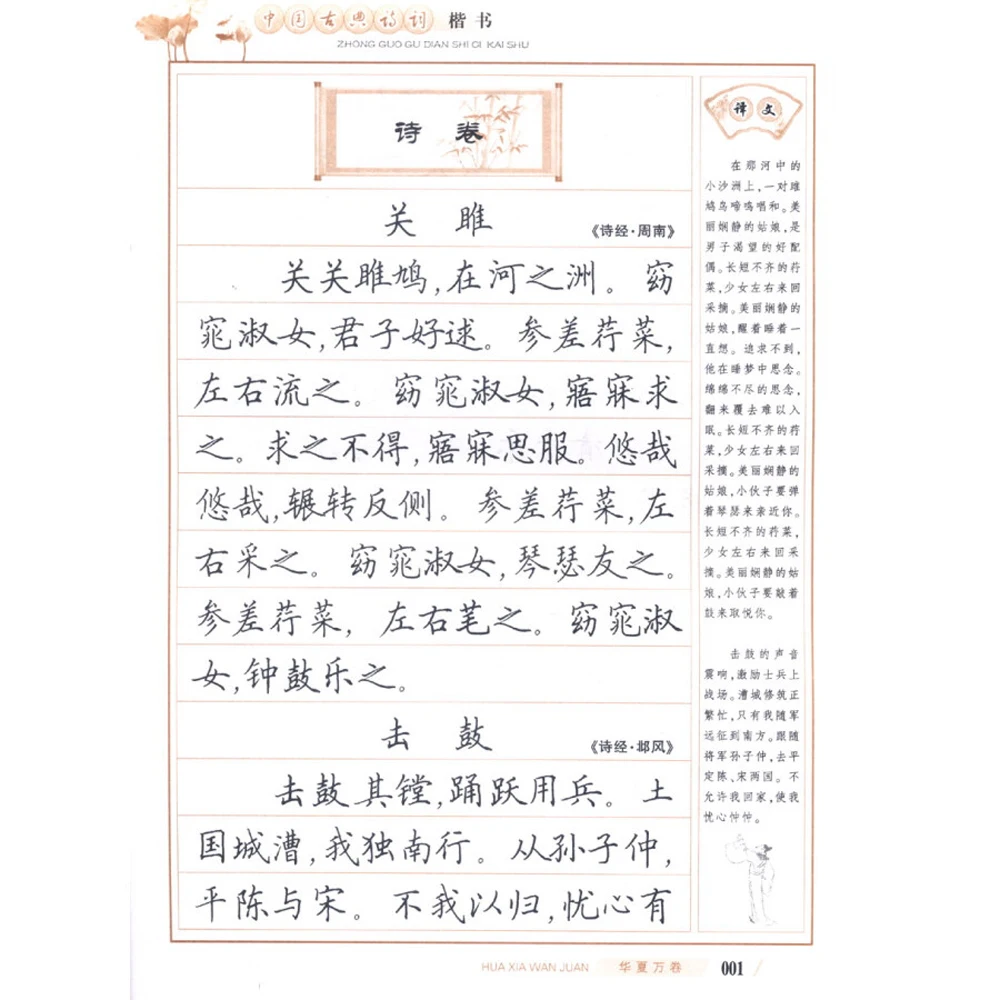 中国古典诗词 楷书
ZHONG GUO GU DIAN SHI CI KAI SHU
诗 卷
关 雎
《诗经·周南》
关关雎鸠,在河之洲。窈
窕淑女,君子好逑。参差荇菜,
左右流之。窈窕淑女,寤寐求
之。求之不得,寤寐思服。悠哉
悠哉,辗转反侧。参差荇菜,左
右采之。窈窕淑女,琴瑟友之。
参差荇菜,左右芼之。窈窕淑
女,钟鼓乐之。
击 鼓
《诗经·邶风》
击鼓其镗,踊跃用兵。土
国城漕,我独南行。从孙子仲,
平陈与宋。不我以归,忧心有
译文
在那河中的
小沙洲上,一对雎
鸠鸟啼鸣唱和。美
丽娴静的姑娘,是
男子渴望的好配
偶。长短不齐的荇
菜,少女左右来回
采摘。美丽娴静的
姑娘,醒着睡着一
直想。追求不到,
他在睡梦中思念。
绵绵不尽的思念,
翻来覆去难以入
眠。长短不齐的荇
菜,少女左右来回
采摘。美丽娴静的
姑娘,小伙子要弹
着琴瑟来亲近你。
长短不齐的荇菜,
少女左右来回采
摘。美丽娴静的姑
娘,小伙子要敲着
鼓来取悦你。
击鼓的声音
震响,激励士兵上
战场。漕城修筑正
繁忙,只有我随军
远征到南方。跟随
将军孙子仲,去平
定陈、宋两国。不
允许我回家,使我
忧心忡忡。
HUA XIA WAN JUAN 华夏万卷 001